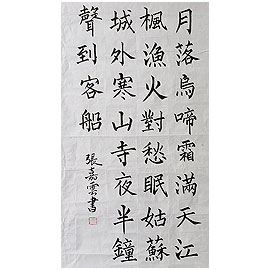 月落烏啼霜滿天江
楓漁火對愁眠姑蘇
城外寒山寺夜半鐘
聲到客船
張嘉雲書